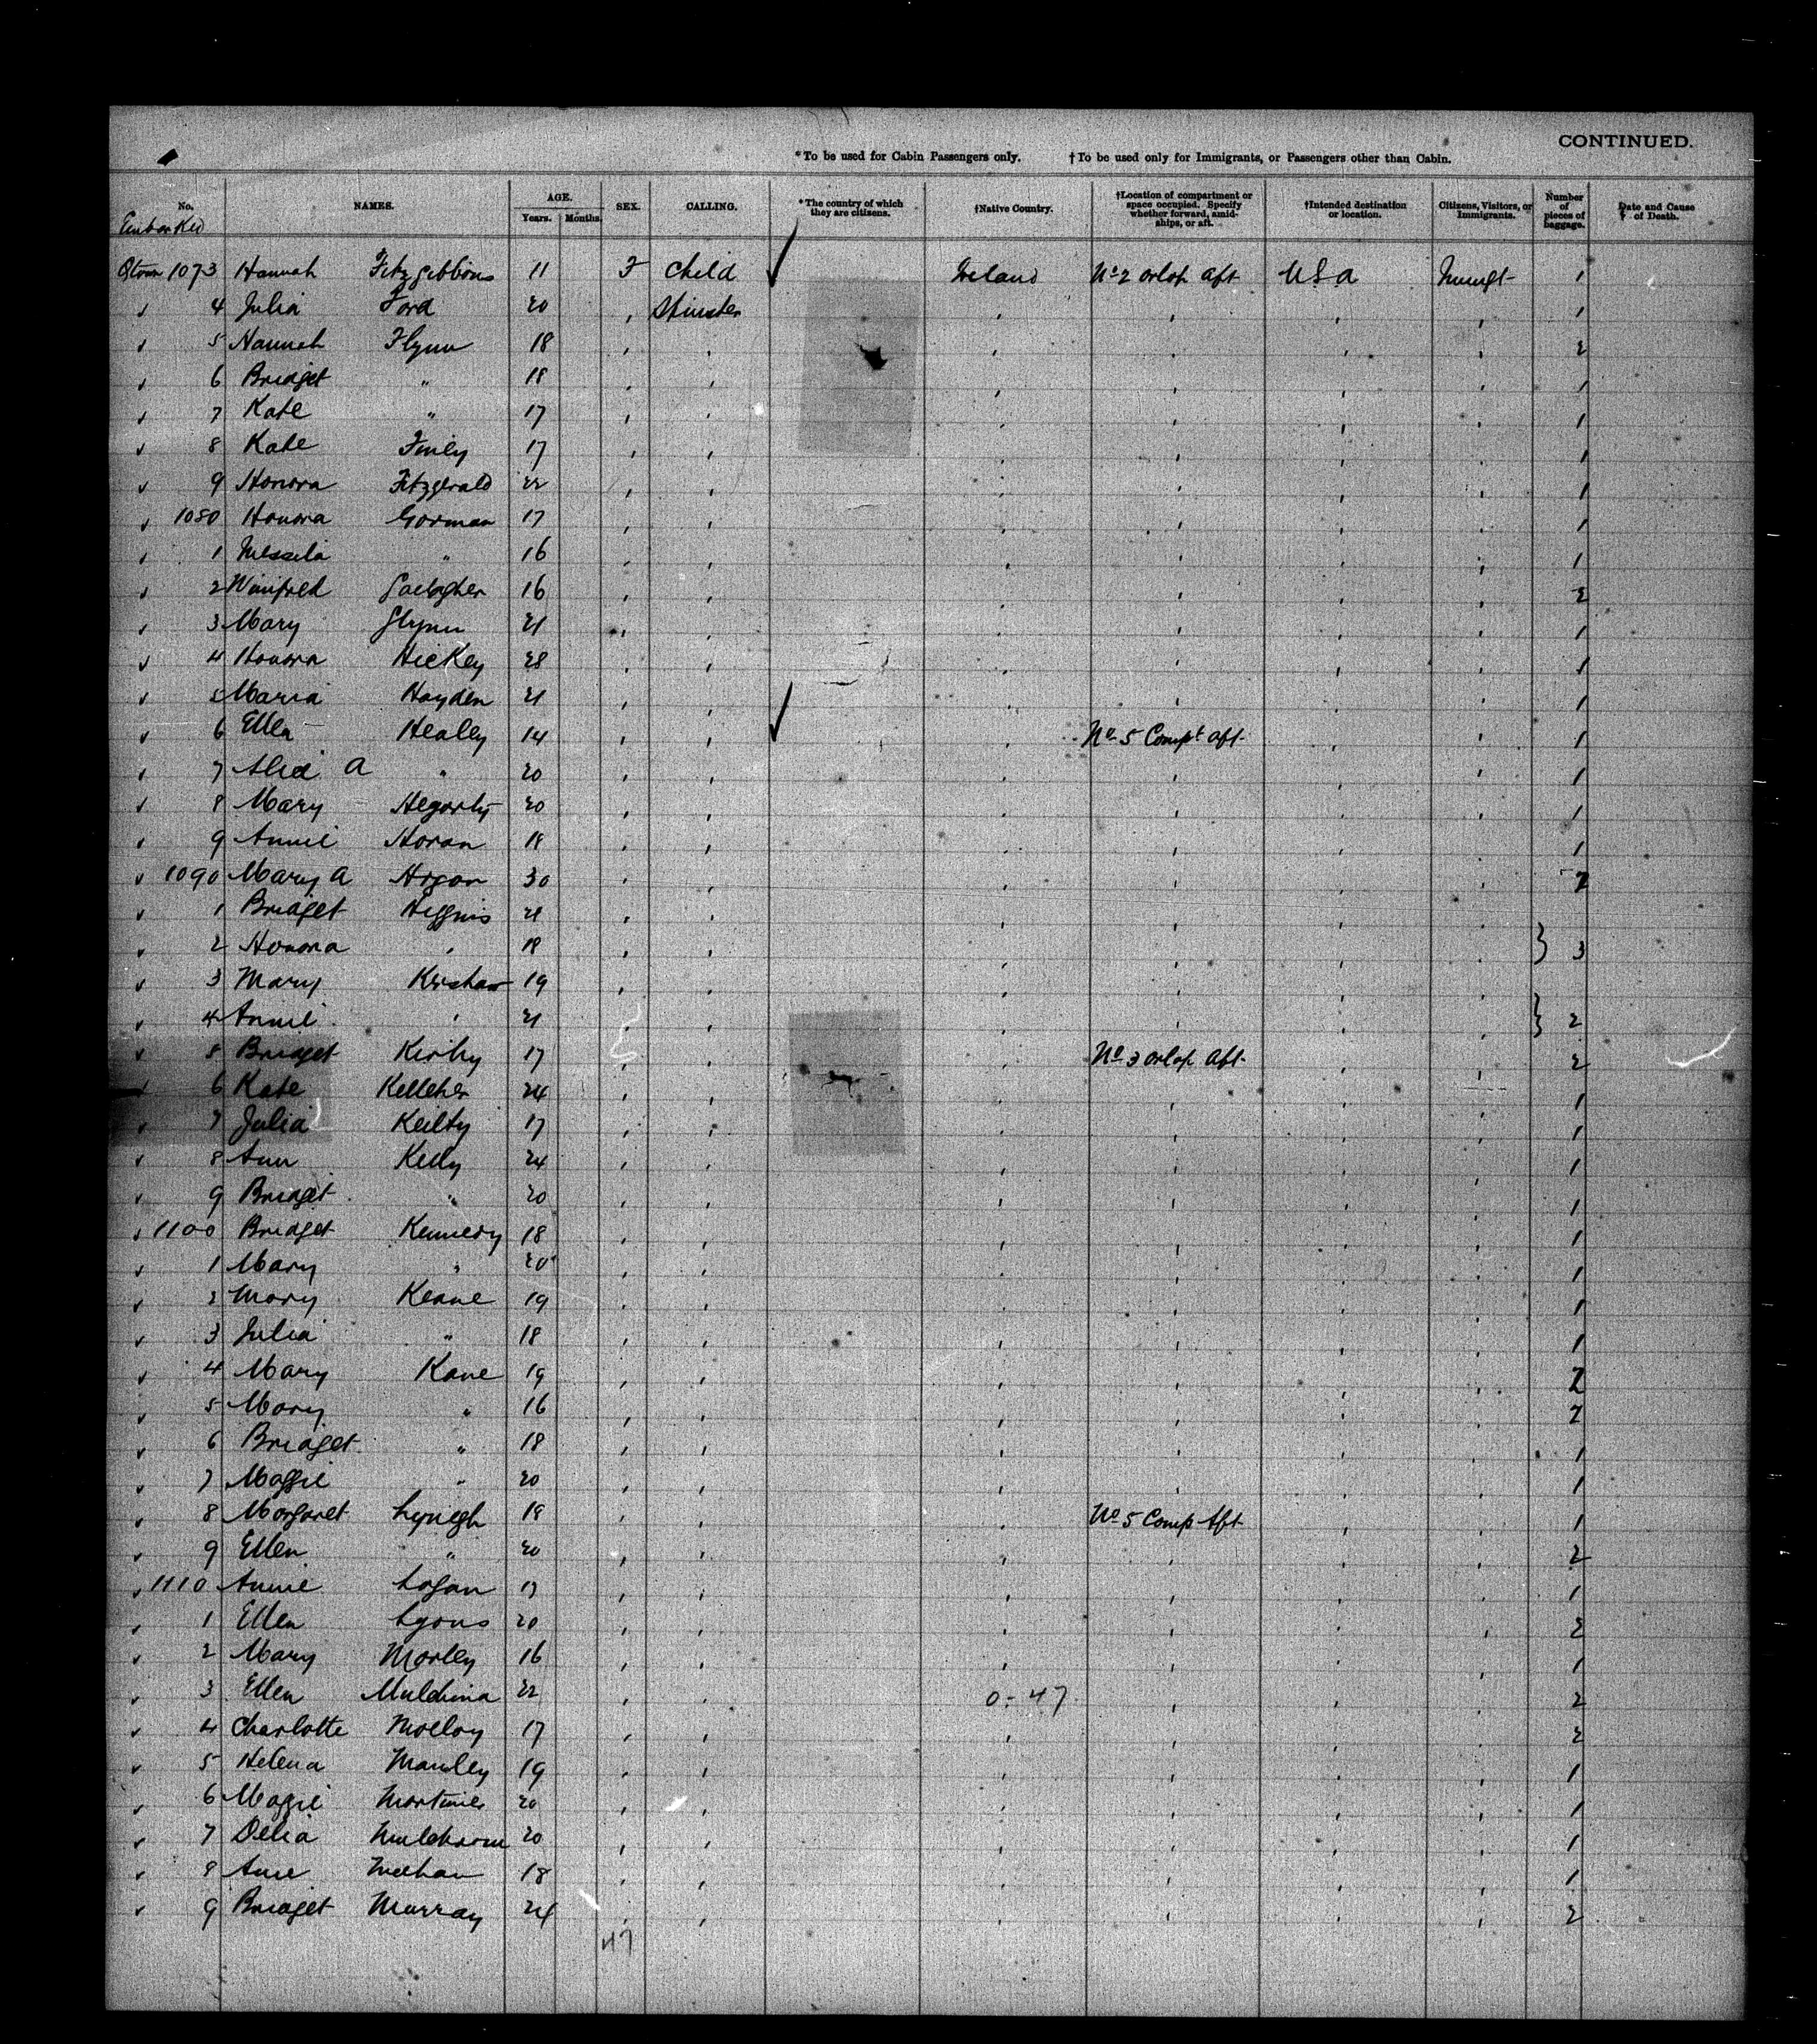 CONTINUED.
*To be used for Cabin Passengers only. †To be used only for Immigrants, or Passengers other than Cabin.
No. NAMES. AGE. Years. Months. SEX. CALLING. *The country of which they are citizens. †Native Country. †Location of compartment or space occupied. Specify whether forward, amidships, or aft. †Intended destination or location. Citizens, Visitors, or Immigrants. Number of pieces of baggage. Date and Cause of Death.
Embarked
Qtown 1073 Hannah Fitzgibbons 11 F Child Ireland No 2 orlop aft USA Immgt 1
4 Julia Ford 20 " Spinster " " " " 1
5 Hannah Flynn 18 " " " " " " 2
6 Bridget " 18 " " " " " " 1
7 Kate " 17 " " " " " " 1
8 Kate Finly 17 " " " " " " 1
9 Honora Fitzgerald 22 " " " " " " 1
1080 Honora Gorman 17 " " " " " " 1
1 " 16 " " " " " " 1
2 Winifred Gallagher 16 " " " " " " 2
3 Mary Glynn 21 " " " " " " 1
4 Honora Hickey 28 " " " " " " 1
5 Maria Hayden 21 " " " " " " 1
6 Ellen Healey 14 " " " No 5 Compt aft " " 1
7 A " 20 " " " " " " 1
8 Mary Hegarty 20 " " " " " " 1
9 Annie Horan 18 " " " " " " 1
1090 Mary A 30 " " " " " " 2
1 Bridget Higgins 21 " " " " " "
2 Honora " 18 " " " " " " } 3
3 Mary Kershaw 19 " " " " " "
4 Annie " 21 " " " " " " } 2
5 Bridget Kirby 17 " " " No 3 orlop aft " " 2
6 Kate Kelleher 24 " " " " " " 1
7 Julia Keilty 17 " " " " " " 1
8 Ann Kelly 24 " " " " " " 1
9 Bridget " 20 " " " " " " 1
1100 Bridget Kennedy 18 " " " " " " 1
1 Mary " 20 " " " " " " 1
2 Mary Keane 19 " " " " " " 1
3 Julia " 18 " " " " " " 1
4 Mary Kane 19 " " " " " " 2
5 Mary " 16 " " " " " " 2
6 Bridget " 18 " " " " " " 1
7 Maggie " 20 " " " " " " 1
8 Margaret 18 " " " No 5 Comp Aft " " 1
9 Ellen " 20 " " " " " " 2
1110 Annie Logan 17 " " " " " " 1
1 Ellen Lyons 20 " " " " " " 2
2 Mary Morley 16 " " " " " " 1
3 Ellen 22 " " 0-47 " " " 2
4 Charlotte Molloy 17 " " " " " " 2
5 Helena Manley 19 " " " " " " 1
6 Maggie Mortimer 20 " " " " " " 1
7 Delia 20 " " " " " " 1
8 Anne Meehan 18 " " " " " " 1
9 Bridget Murray 24 " " " " " " 2
47